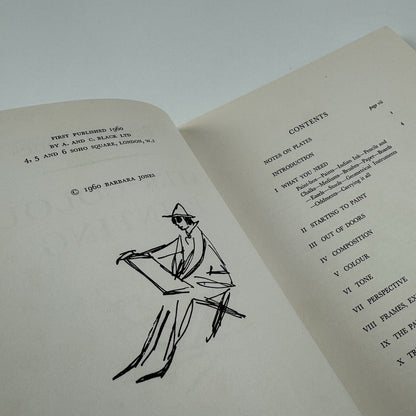 FIRST PUBLISHED 1960
BY A. AND C. BLACK LTD
4, 5 AND 6 SOHO SQUARE, LONDON, W.1
© 1960 BARBARA JONES
CONTENTS
page vii
NOTES ON PLATES
INTRODUCTION 1
I WHAT YOU NEED 4
Paint-box—Paints—Indian Ink—Pencils and
Chalks—Mediums—Brushes—Paper—Boards
—Easels—Stools—Geometrical Instruments
—Oddments—Carrying it all
II STARTING TO PAINT
III OUT OF DOORS
IV COMPOSITION
V COLOUR
VI TONE
VII PERSPECTIVE
VIII FRAMES, EX
IX THE PA
X TR